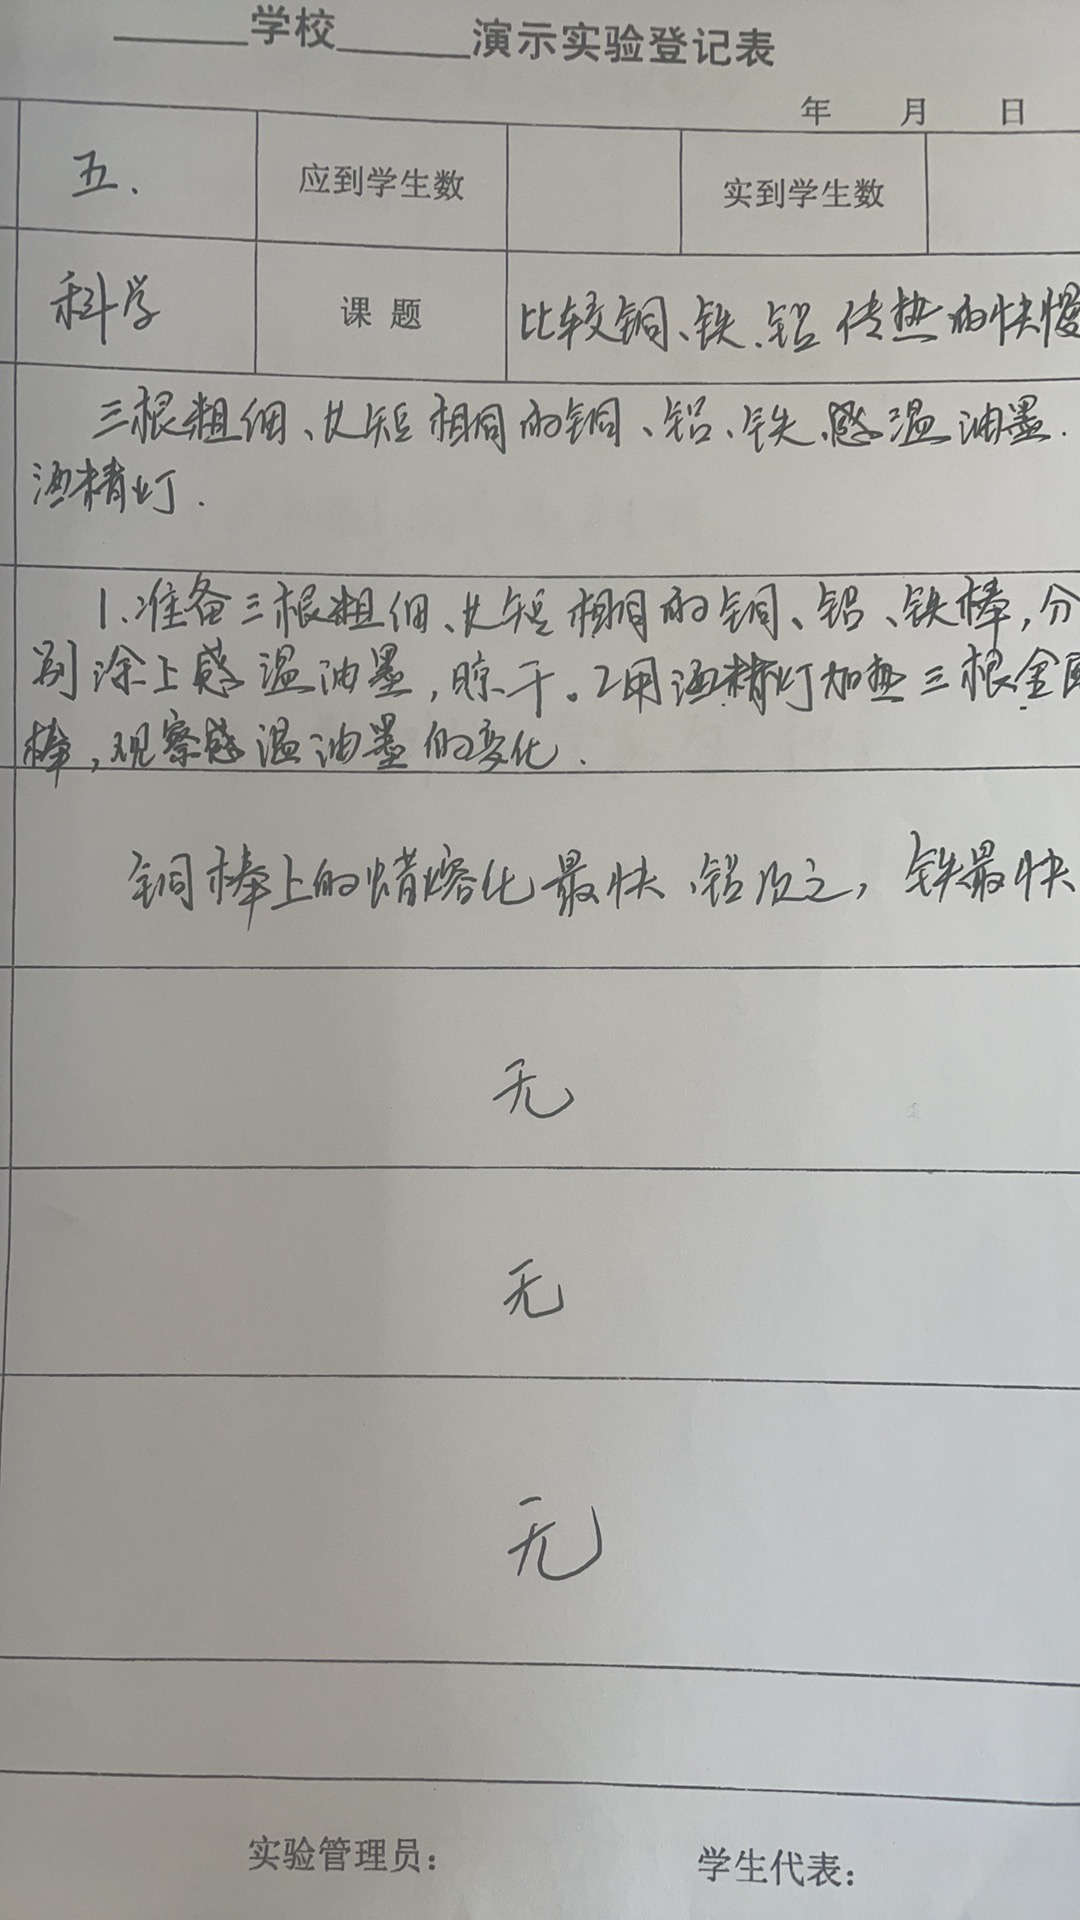 学校 演示实验登记表
年 月 日
五. 应到学生数 实到学生数
科学 课题 比较铜、铁、铝传热的快慢
三根粗细、长短相同的铜、铝、铁、感温油墨.
酒精灯.
1.准备三根粗细、长短相同的铜、铝、铁棒,分
别涂上感温油墨,晾干。2用酒精灯加热三根金属
棒,观察感温油墨的变化.
铜棒上的蜡熔化最快、铝次之,铁最快
无
无
无
实验管理员: 学生代表: